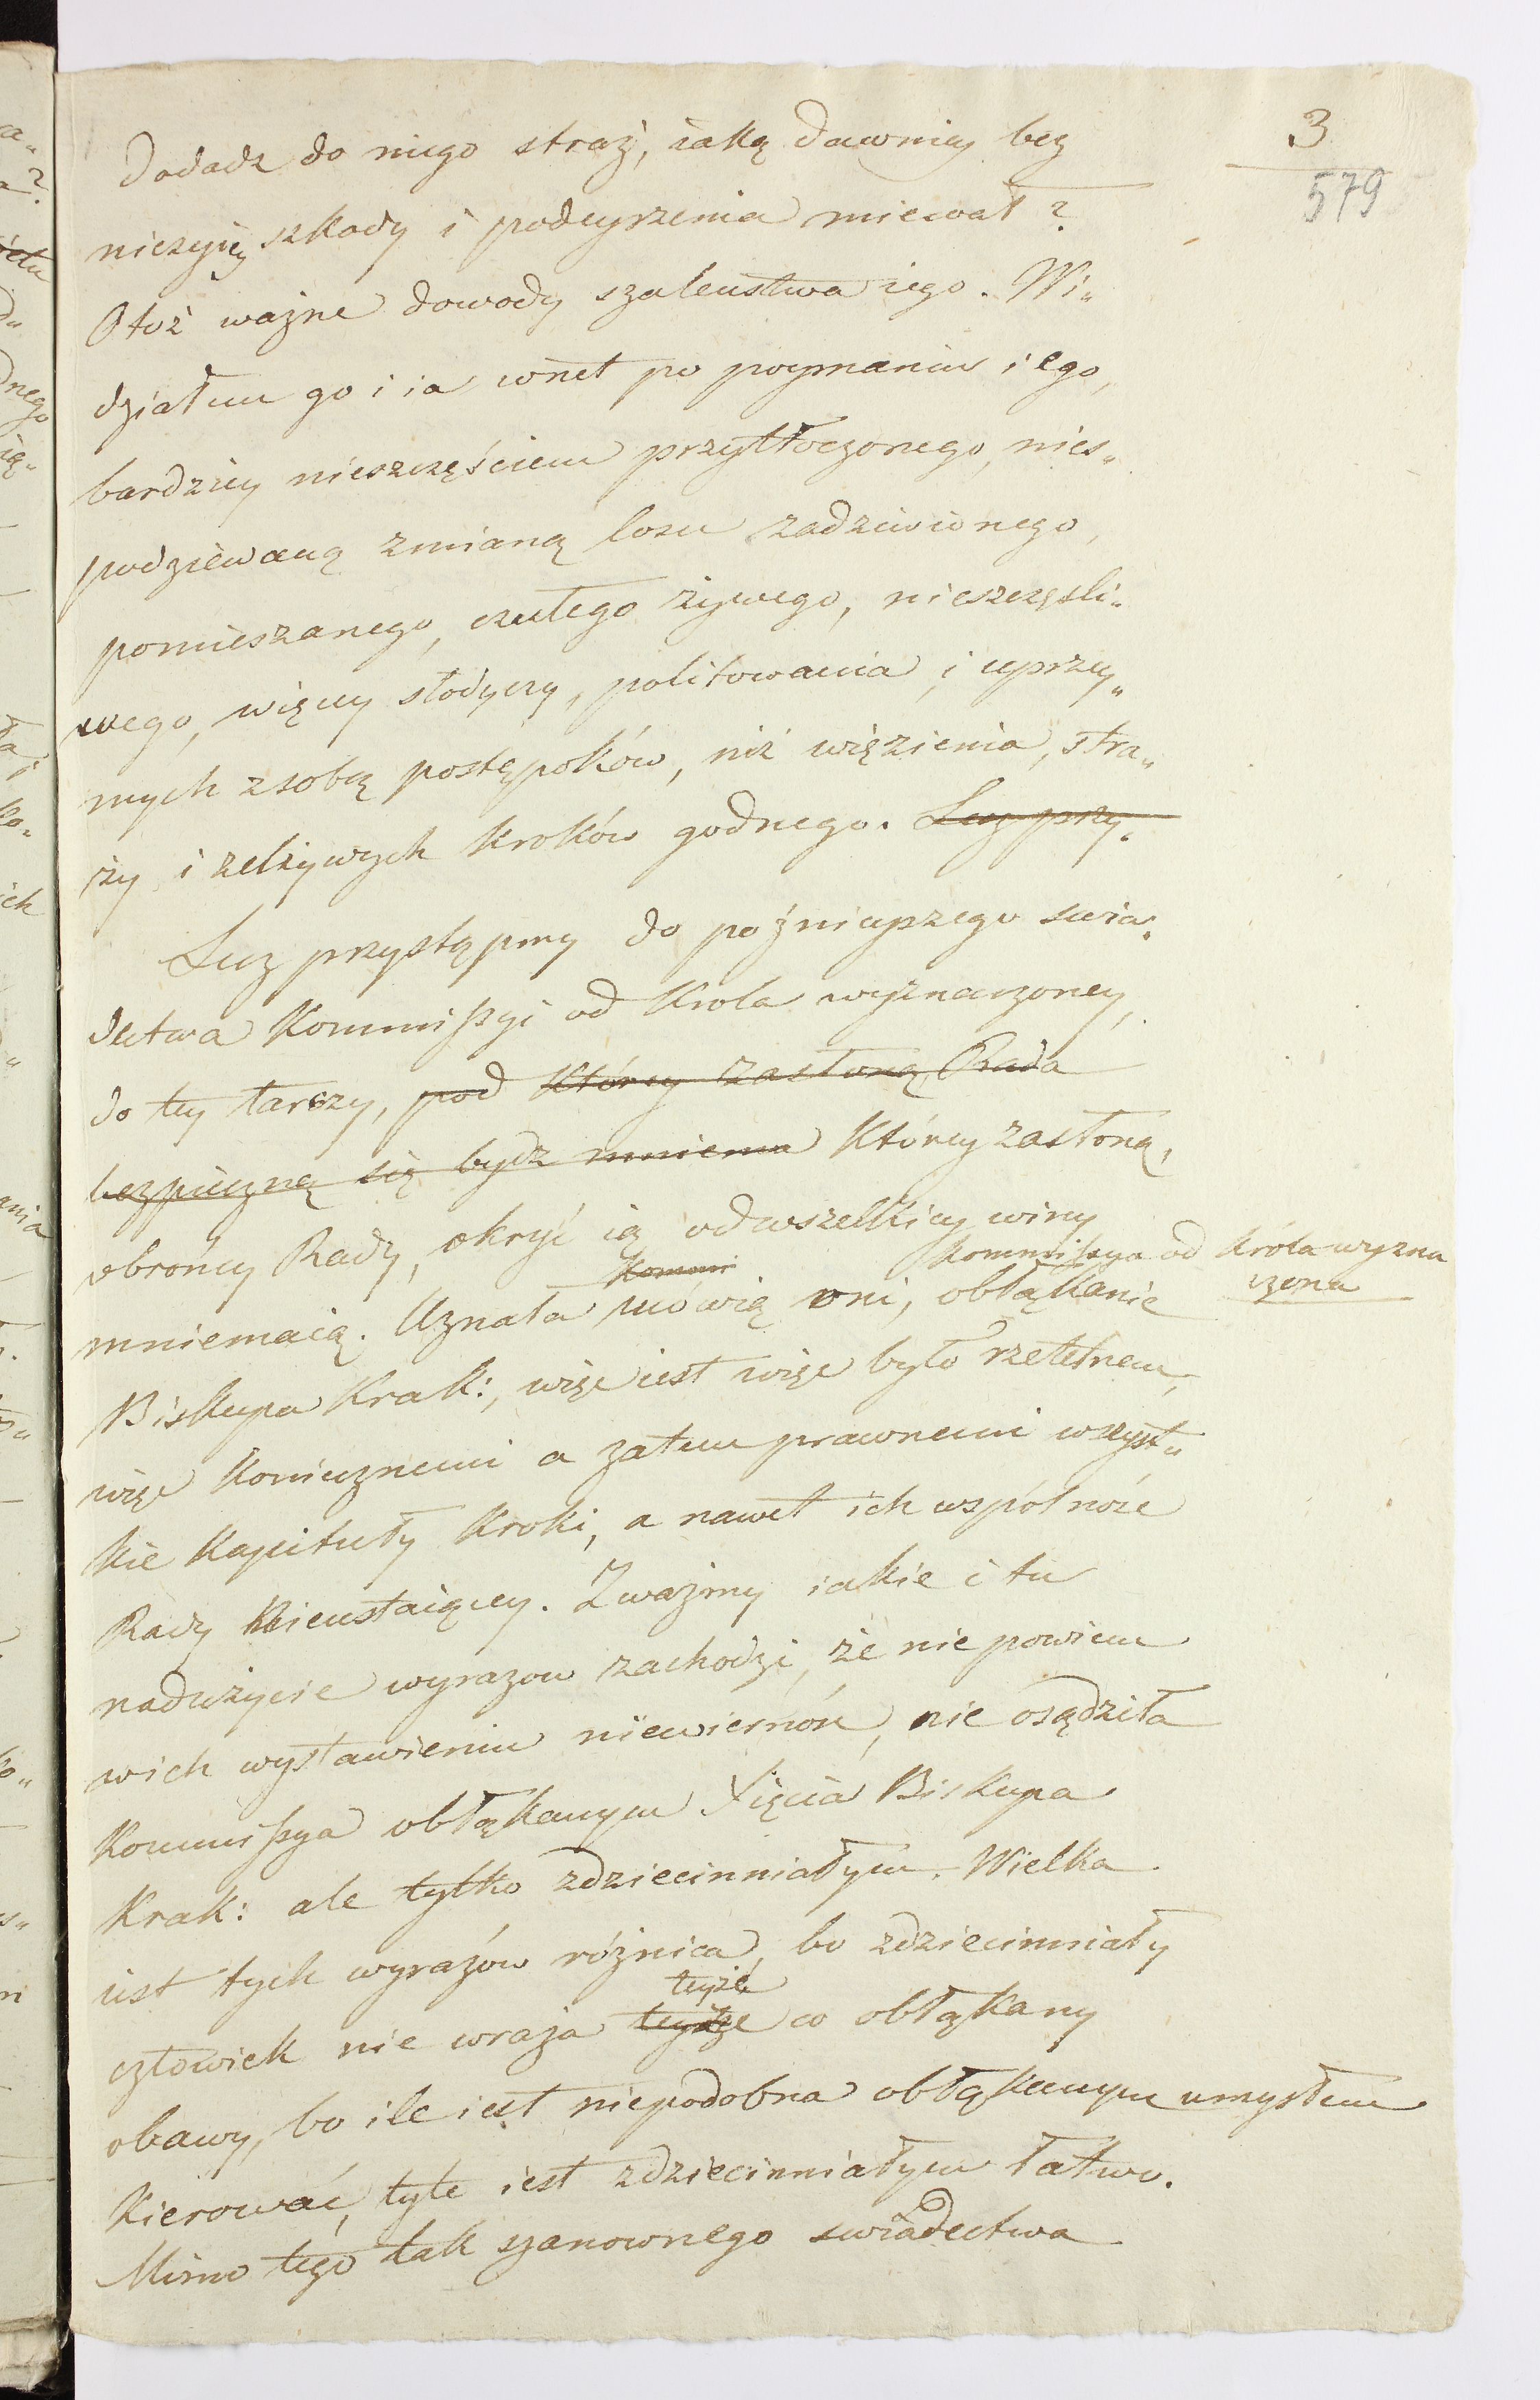 3
579
Dodadz do niego straż, iaką dawniey bez
niczyiey szkody i podeyrzenia miewał?
Otoż ważne dowody szalenstwa iego. Wi„
działem go i ia wnet po poymaniu iego,
bardziey nieszczęściem przytłoczonego, nies„
podziewaną zmianą losu zadziwionego,
pomieszanego, czułego żywego, nieszczęsli„
wego, więcey słodyczy, politowania i uprzey„
mych z sobą postępoków, niż więzienia, stra„
ży i zelżywych kroków godnego. Lecz przy„
Lecz przystąpmy do poźnieyszego swia„
dectwa Kommissyi od Krola wyznaczoney,
do tey tarczy, pod ktorey zasłoną Rada
bezpieczną się bydz mniema którey zasłoną,
obrońcy Rady, okryć ią od wszelkiey winy
Kommissya od Króla wyzna
czona
Kommi
mniemaią. Uznała mówią oni, obłąkanie
Biskupa Krak:, więc iest więc było rzetelnem,
więc koniecznemi a zatem prawnemi wszyst„
kie Kapituły kroki, a nawet ich wspólność
Rady Nieustaiącey. Zważmy iakie i tu
nadużycie wyrazow zachodzi, że nie powiem
w ich wystawieniu niewierność, nie osądziła
Kommissya obłąkanym Xięcia Biskupa
Krak: ale tylko zdziecinniałym. Wielka
iest tych wyrazów różnica, bo zdziecinniały
teyże
człowiek nie wraża teyże co obłąkany
obawy, bo ile iest niepodobna obłąkanym umysłem
kierować, tyle iest zdziecinniałym łatwo.
Mimo tego tak szanownego swiadectwa